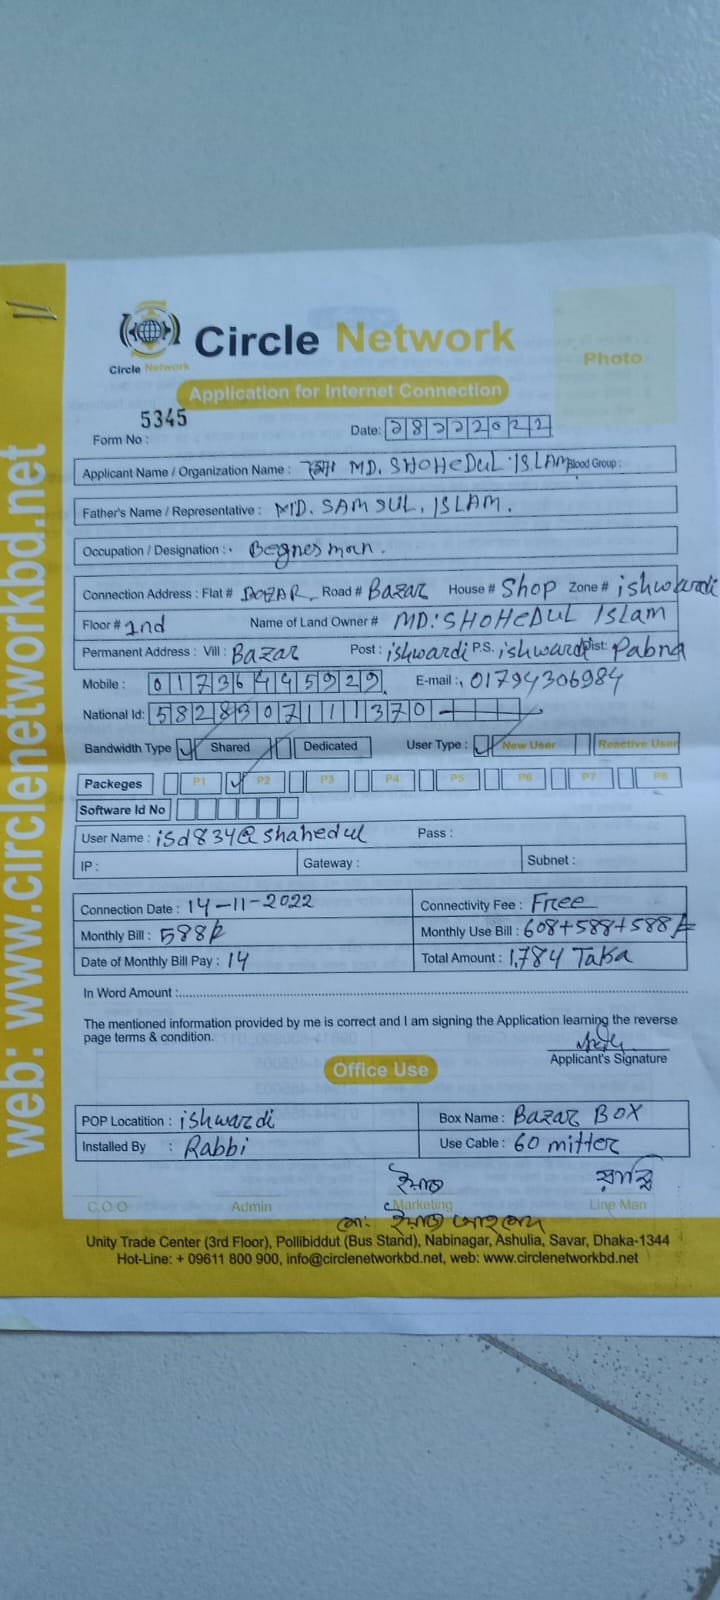 web: www.circlenetworkbd.net
Circle Network
Circle Network
Photo
Application for Internet Connection
Form No : 5345
Date:
Applicant Name / Organization Name : MD. SHOHEDUL ISLAM Blood Group :
Father's Name / Representative : MD. SAMSUL. ISLAM.
Occupation / Designation :
Connection Address : Flat # Road # Bazar House # Shop Zone # ishwardi
Floor # 2nd Name of Land Owner # MD: SHOHEDUL ISLAM
Permanent Address : Vill : Bazar Post : ishwardi P.S. ishwardi Dist: Pabna
Mobile : 01736445929 E-mail : 01794306984
National Id: 5828307111370
Bandwidth Type Shared Dedicated User Type : New User Reactive User
Packeges P1 P2 P3 P4 P5 P6 P7 P8
Software Id No
User Name : isd834@shahedul Pass :
IP : Gateway : Subnet :
Connection Date : 14-11-2022 Connectivity Fee : Free
Monthly Bill : 588/- Monthly Use Bill : 608+588+588/=
Date of Monthly Bill Pay : 14 Total Amount : 1,784 Taka
In Word Amount :
The mentioned information provided by me is correct and I am signing the Application learning the reverse
page terms & condition.
Applicant's Signature
Office Use
POP Locatition : ishwardi Box Name : Bazar BOX
Installed By : Rabbi Use Cable : 60 mitter
C.O.O Admin Marketing Line Man
Unity Trade Center (3rd Floor), Pollibiddut (Bus Stand), Nabinagar, Ashulia, Savar, Dhaka-1344
Hot-Line: + 09611 800 900, info@circlenetworkbd.net, web: www.circlenetworkbd.net